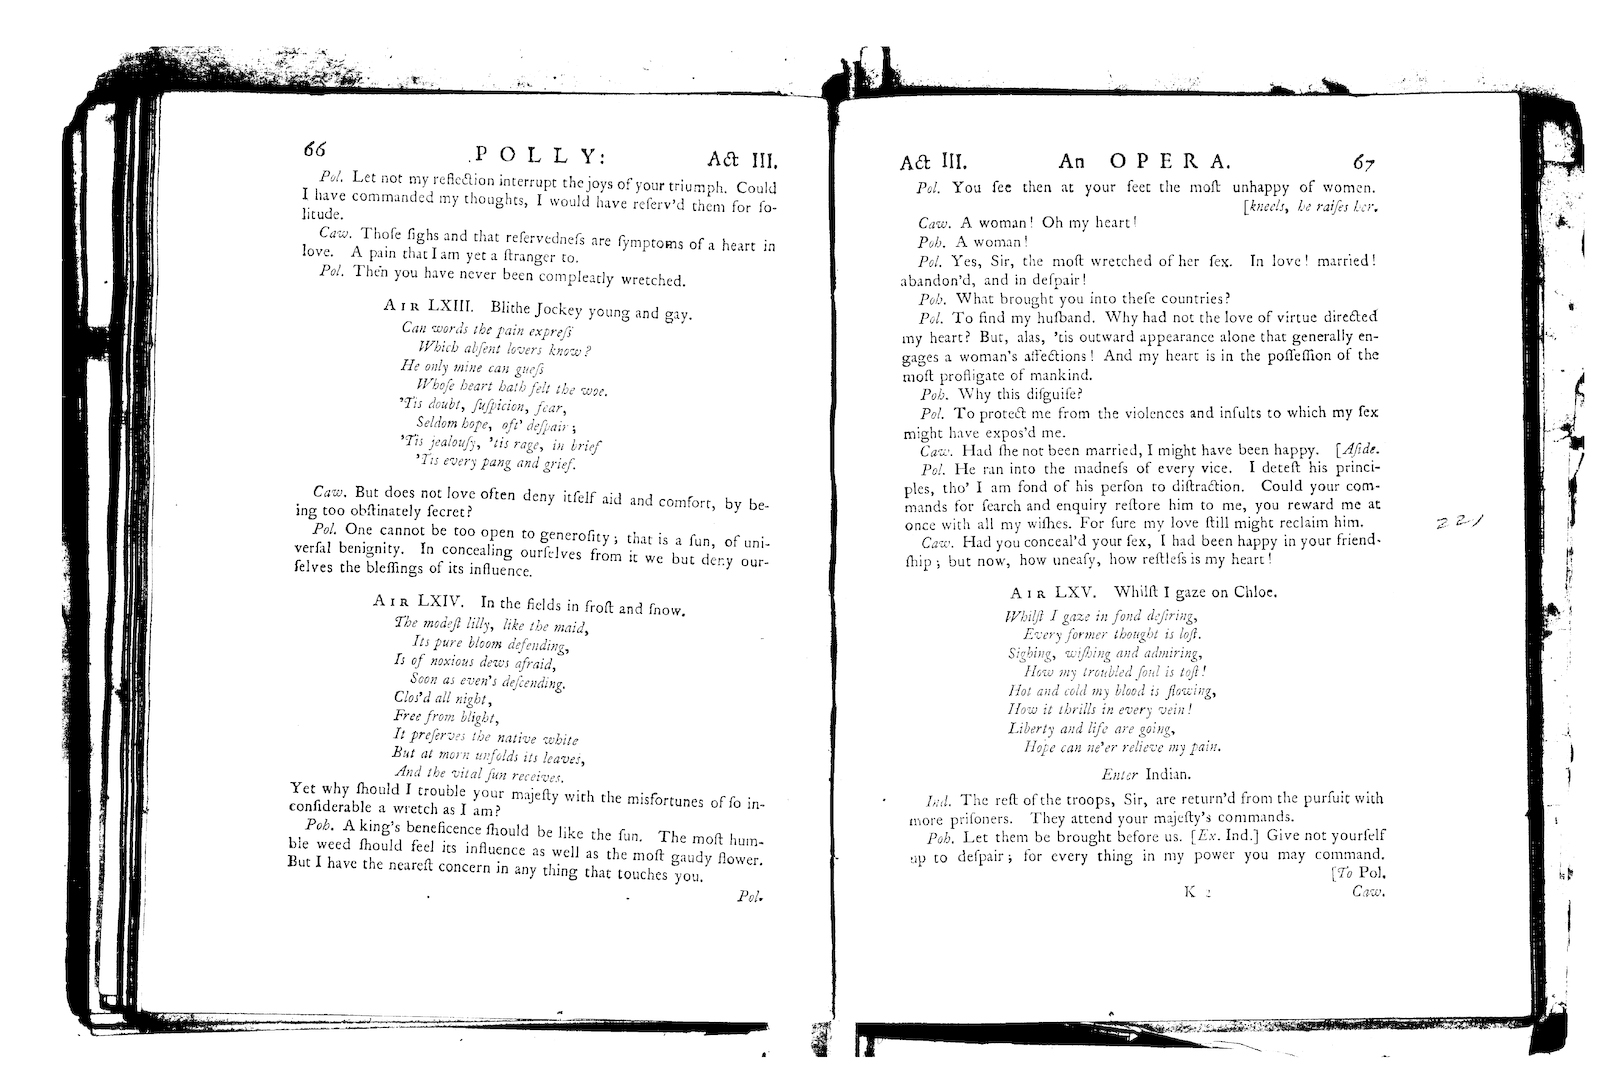 66 POLLY: Act III.
Pol. Let not my reflection interrupt the joys of your triumph. Could
I have commanded my thoughts, I would have reſerv'd them for ſo-
litude.
Caw. Thoſe ſighs and that reſervedneſs are ſymptoms of a heart in
love. A pain that I am yet a ſtranger to.
Pol. Then you have never been compleatly wretched.
AIR LXIII. Blithe Jockey young and gay.
Can words the pain expreſs
Which abſent lovers know?
He only mine can gueſs
Whoſe heart hath felt the woe.
'Tis doubt, ſuſpicion, fear,
Seldom hope, oft' deſpair;
'Tis jealouſy, 'tis rage, in brief
'Tis every pang and grief.
Caw. But does not love often deny itſelf aid and comfort, by be-
ing too obſtinately ſecret?
Pol. One cannot be too open to generoſity; that is a ſun, of uni-
verſal benignity. In concealing ourſelves from it we but deny our-
ſelves the bleſſings of its influence.
AIR LXIV. In the fields in froſt and ſnow.
The modeſt lilly, like the maid,
Its pure bloom defending,
Is of noxious dews afraid,
Soon as even's deſcending.
Clos'd all night,
Free from blight,
It preſerves the native white
But at morn unfolds its leaves,
And the vital ſun receives.
Yet why ſhould I trouble your majeſty with the misfortunes of ſo in-
conſiderable a wretch as I am?
Poh. A king's beneficence ſhould be like the ſun. The moſt hum-
ble weed ſhould feel its influence as well as the moſt gaudy flower.
But I have the neareſt concern in any thing that touches you.
Pol.
Act III. An OPERA. 67
Pol. You ſee then at your feet the moſt unhappy of women.
[kneels, he raiſes her.
Caw. A woman! Oh my heart!
Poh. A woman!
Pol. Yes, Sir, the moſt wretched of her ſex. In love! married!
abandon'd, and in deſpair!
Poh. What brought you into theſe countries?
Pol. To find my huſband. Why had not the love of virtue directed
my heart? But, alas, 'tis outward appearance alone that generally en-
gages a woman's affections! And my heart is in the poſſeſſion of the
moſt profligate of mankind.
Poh. Why this diſguiſe?
Pol. To protect me from the violences and inſults to which my ſex
might have expos'd me.
Caw. Had ſhe not been married, I might have been happy. [Aſide.
Pol. He ran into the madneſs of every vice. I deteſt his princi-
ples, tho' I am fond of his perſon to diſtraction. Could your com-
mands for ſearch and enquiry reſtore him to me, you reward me at
once with all my wiſhes. For ſure my love ſtill might reclaim him.
Caw. Had you conceal'd your ſex, I had been happy in your friend-
ſhip; but now, how uneaſy, how reſtleſs is my heart!
221
AIR LXV. Whilſt I gaze on Chloe.
Whilſt I gaze in fond deſiring,
Every former thought is loſt.
Sighing, wiſhing and admiring,
How my troubled ſoul is toſt!
Hot and cold my blood is flowing,
How it thrills in every vein!
Liberty and life are going,
Hope can ne'er relieve my pain.
Enter Indian.
Ind. The reſt of the troops, Sir, are return'd from the purſuit with
more priſoners. They attend your majeſty's commands.
Poh. Let them be brought before us. [Ex. Ind.] Give not yourſelf
up to deſpair; for every thing in my power you may command.
[To Pol.
K 2 Caw.